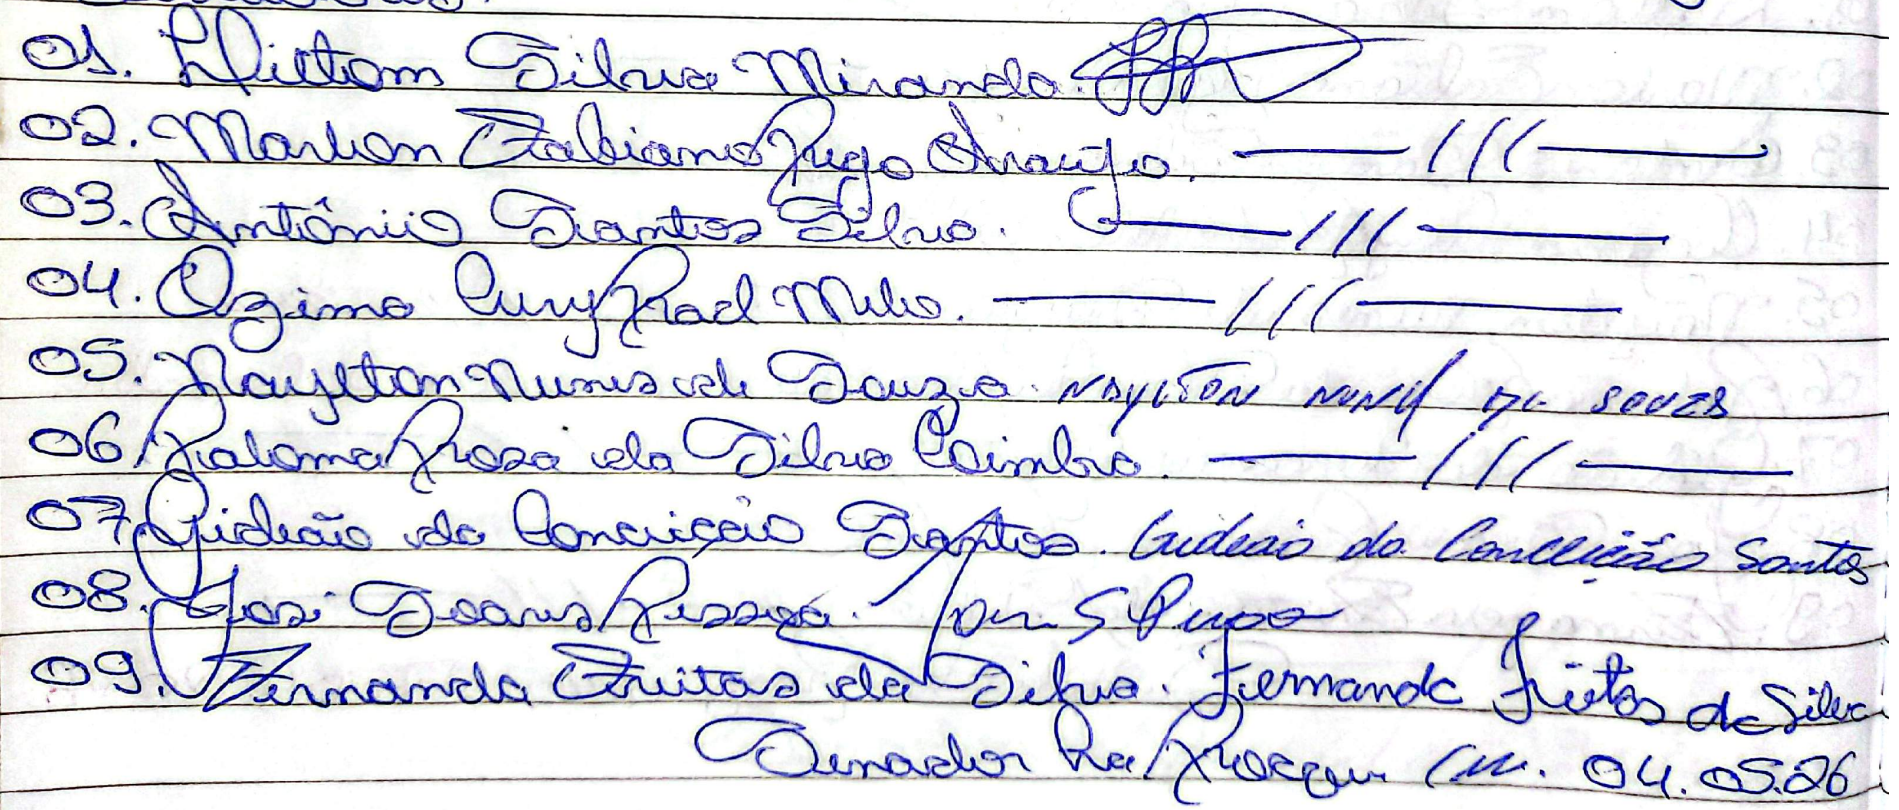 01. Wiltom Silva Miranda.
02. Marlon Fabiano Rego Araujo. ——— /// ———
03. Antônio Santos Silva. ——— /// ———
04. Ozimo Cury Rael Melo. ——— /// ———
05. Naylton Nunes de Souza. NAYLTON NUNES DE SOUZA
06 Paloma Rosa da Silva Coimbra. ——— /// ———
07. Gideão da Conceição Santos. Gideão da Conceição Santos
08. José Soares Pessoa.
09. Fernanda Freitas da Silva. Fernanda Freitas da Silva
Senador La Rocque em. 04.05.26